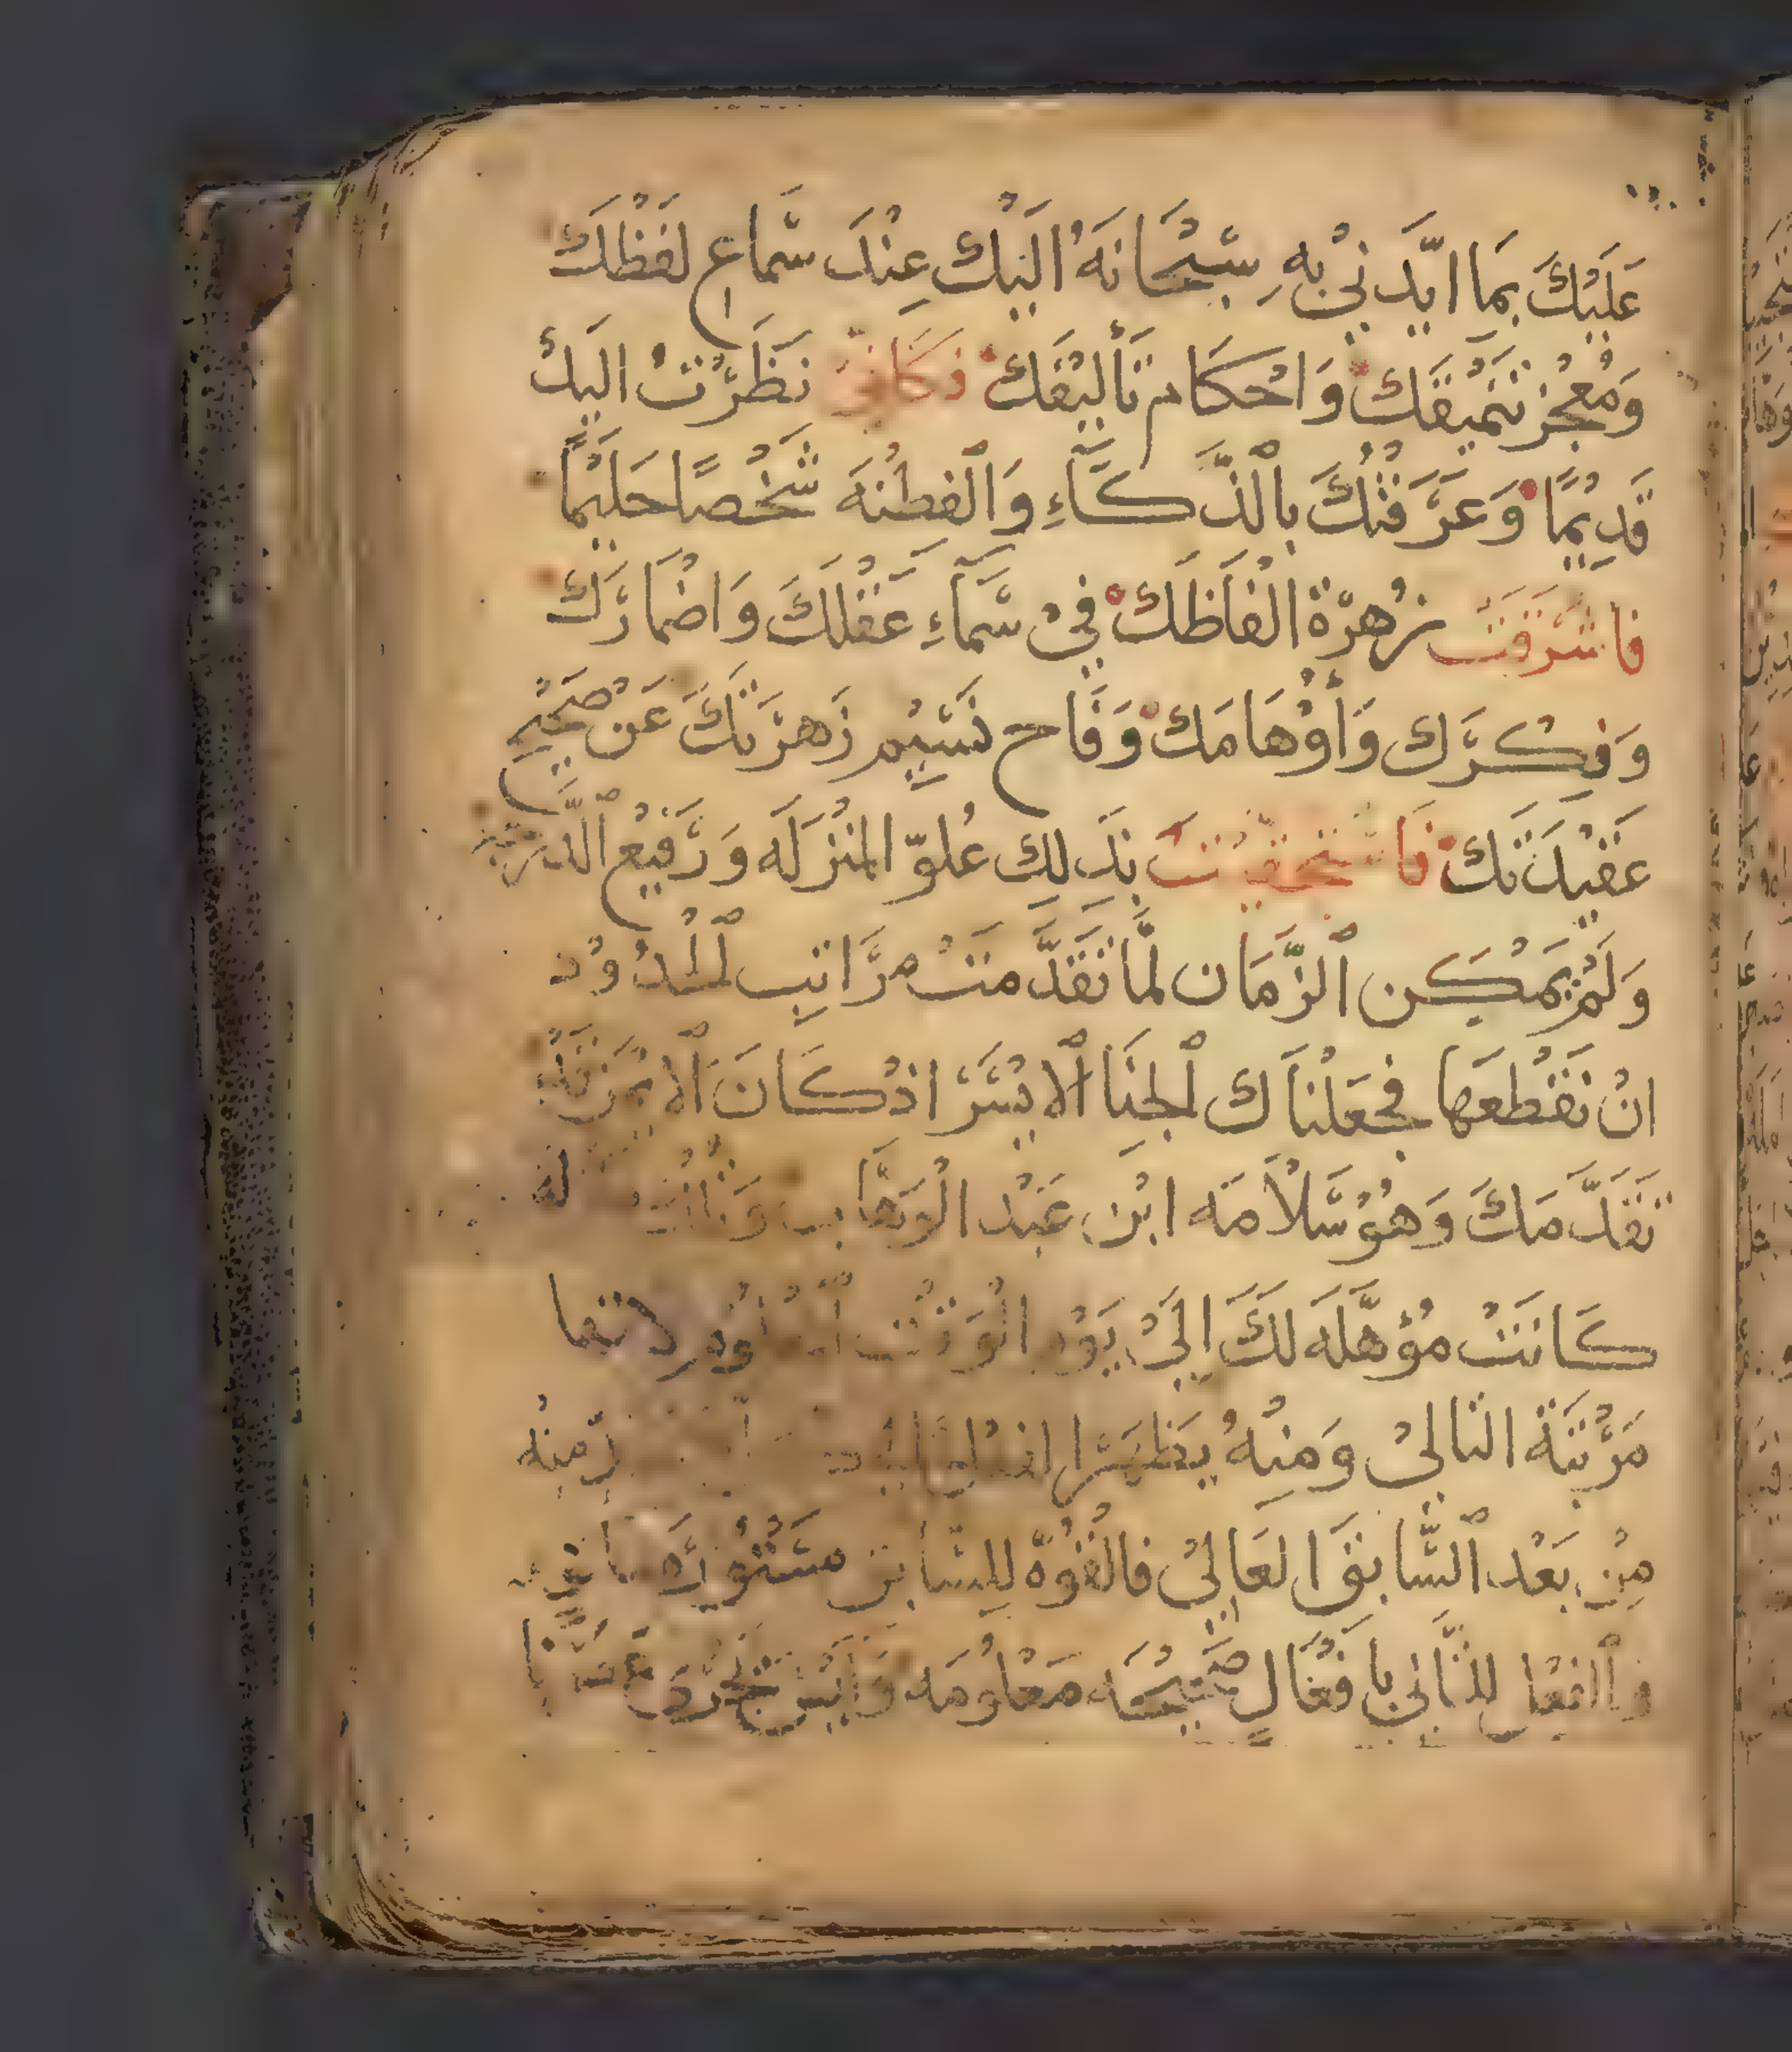 عَلَيْكَ بِمَا ايَّدَنِيْ بِهِ سُبْحَانَهُ الَيْكَ عِنْدَ سَّمَاعِ لَفْظِكَ
وَمُعْجِز تَنْمِيقَكَ وَاحْكَام تَأْلِيْفَكَ فَكَانِّيْ نَظَرْتُ الَيْكَ
قَدِيْمًا وَعَرَفْتُكَ بِالذَّكَآءِ وَالْفِطْنَة شَخْصًا حَلِيْمًا
فاشَرَقَتْ زُهرَة الْفَاظَكَ فِيْ سَّمَآءِ عَقْلَكَ وَاضْمَارَكْ
وَفِكْرَك وَأوْهَامَكْ وَفَاح نَسِّيْم زَهرَتَكَ عَنْ صَحِيْح
عَقِيْدَتَكْ فَاسْتَحَقَيْتَ بِذَلِكِ عُلوّ المَنْزلَه وَرَفِيْع الدَّرَجَة
وَلَمْ يَمْكِن الزَّمَان لمَّا تَقَدَّمَتْ مرَاتِب الحُدُوْد
انْ نَقْطَعَها فَجَعَلْنَاك الجنَاَ الايْسَر اذْ كَانَ الايْمَن قَدْ
تَقَدَّمَكَ وَهُوْ سَّلاَمَه ابْن عَبْد الْوَهَّاب وَ
كَانَتْ مُؤهَّلَه لَكَ اِلَيْ يَوْم الْوَقْت
مَرْتبَة التَالِيْ وَمِنْهُ يَظهَر مِنْهُ
مِنْ بَعْد السَّابق العَالِيْ فالْقُوَّة لِلسَّابق مَسْتُوْرَه
وَالفعْل لِلتَّالِيْ بِافْعَالٍ صَحِيْحَه مَعْلُوْمَه